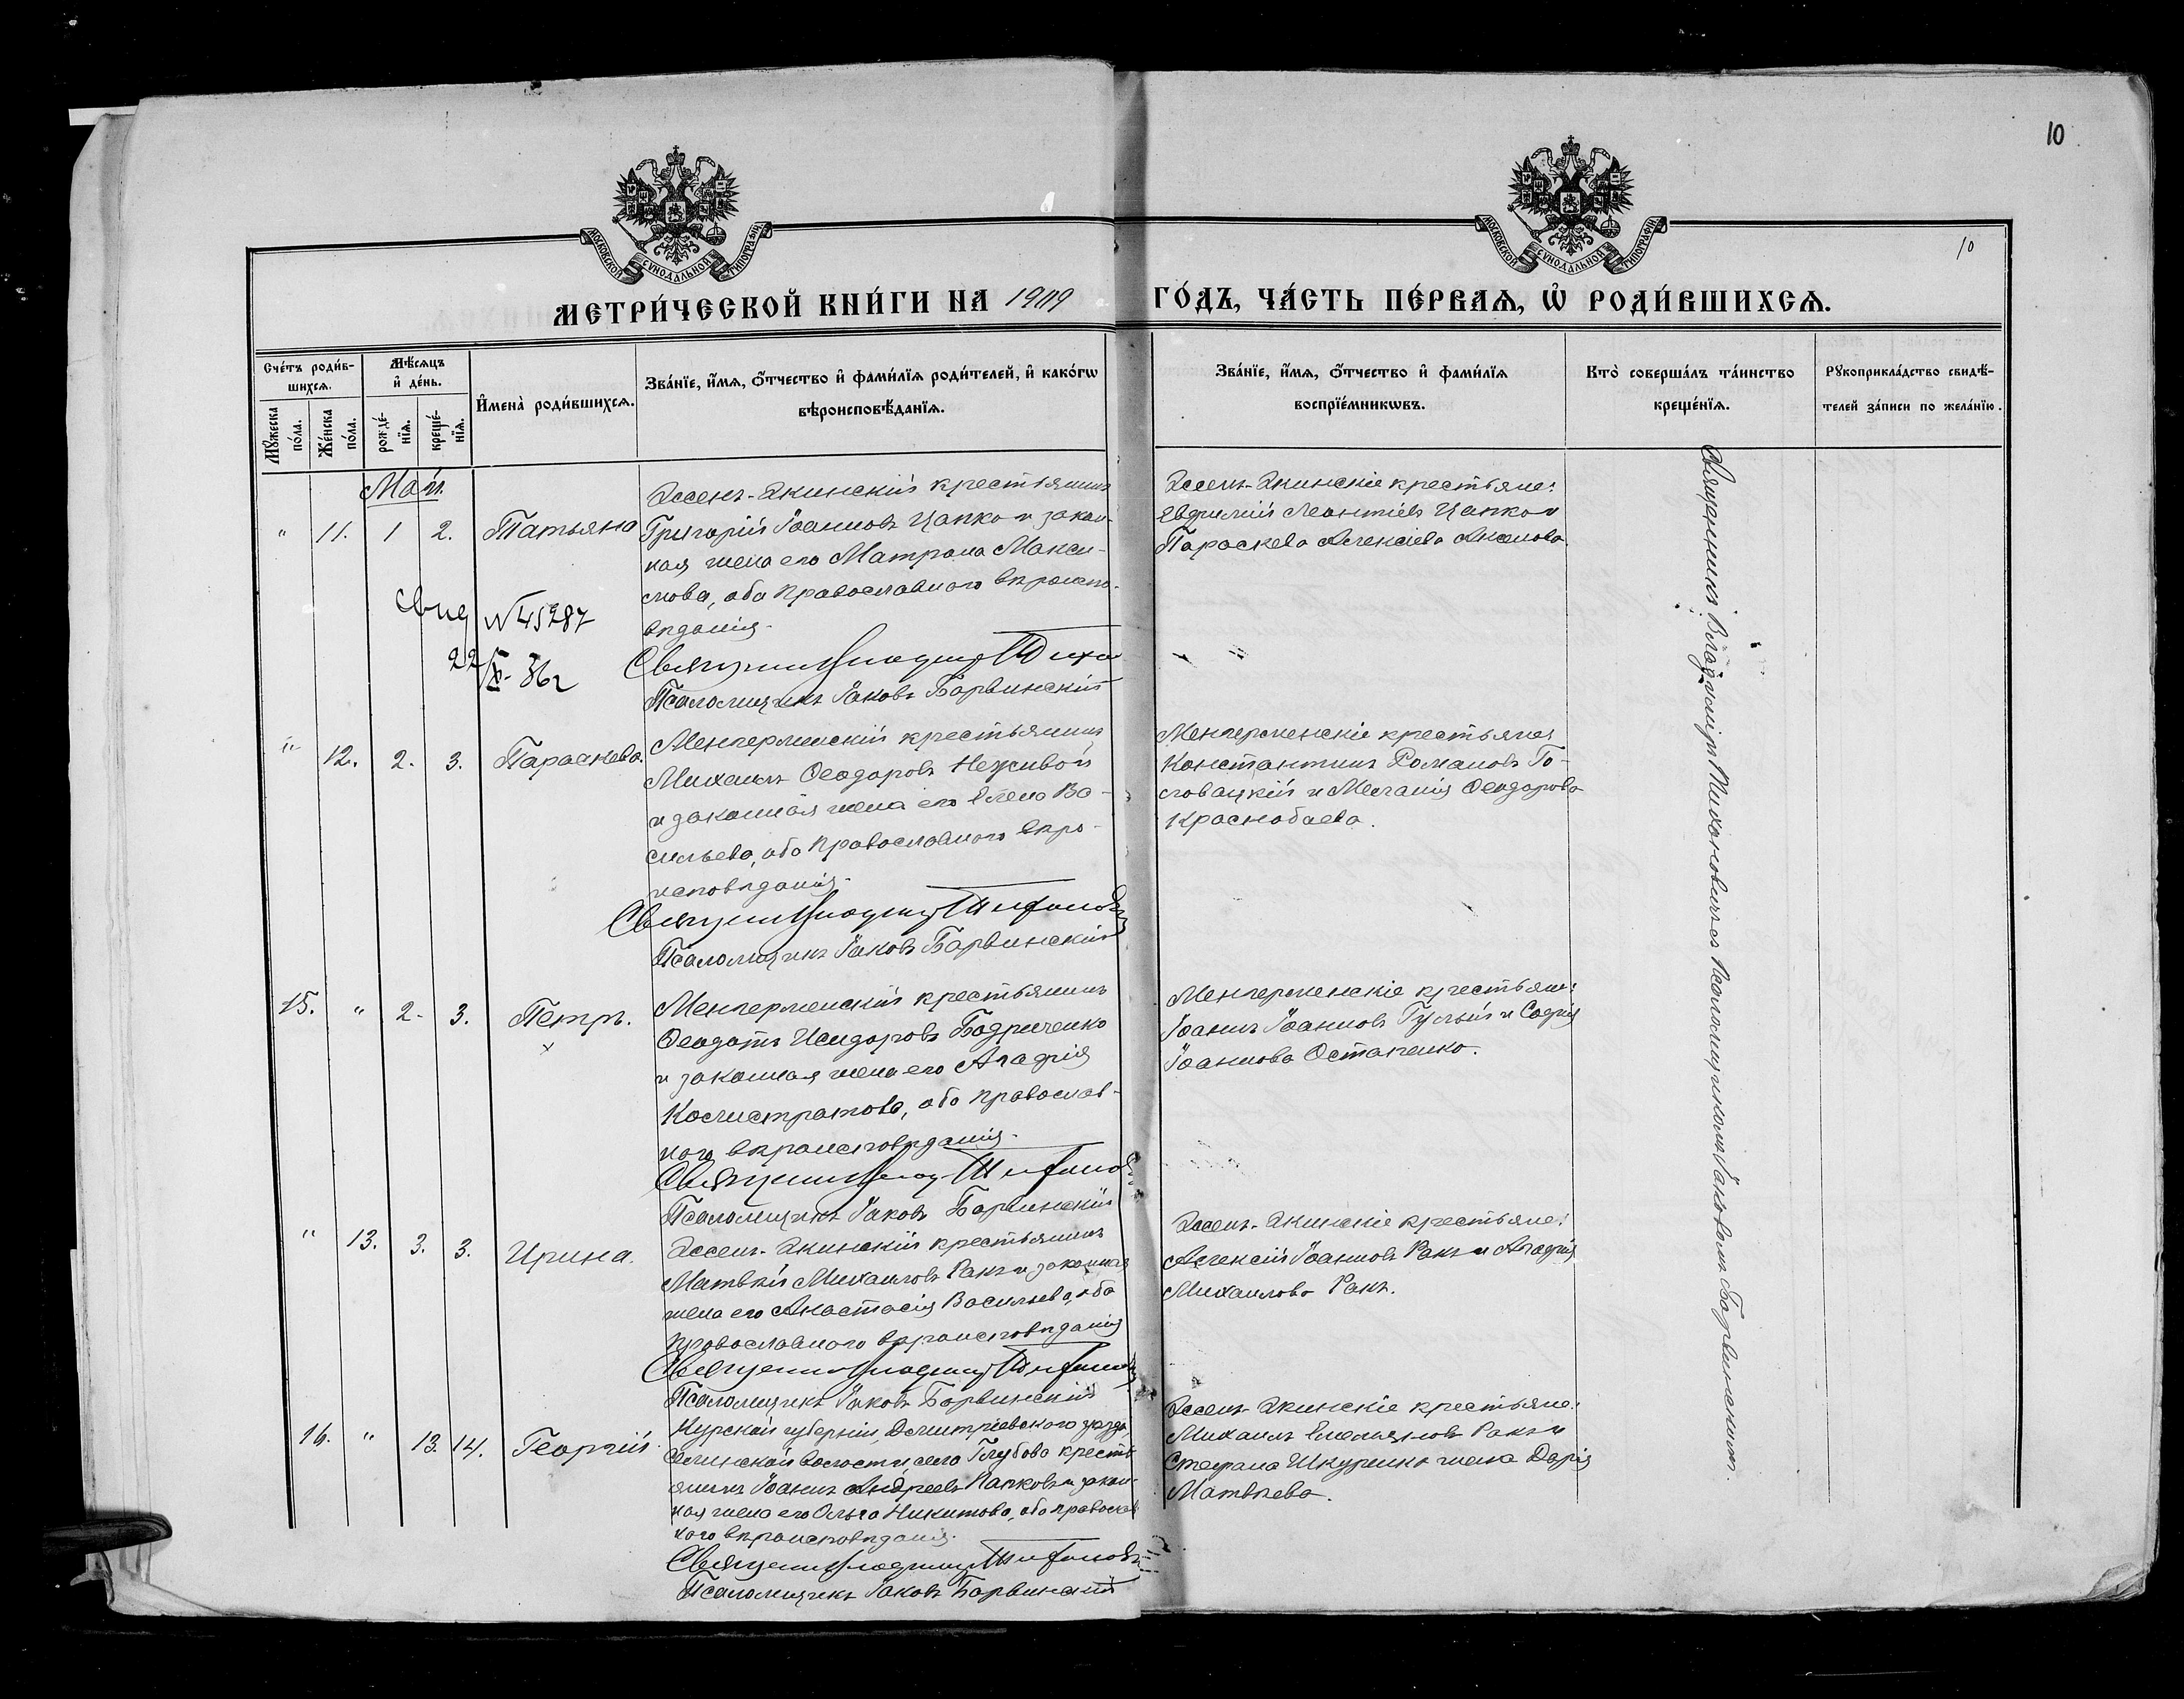 10
10
МОСКОВСКОЙ СѴНОДАЛЬНОЙ ТИПОГРАФІИ
МОСКОВСКОЙ СѴНОДАЛЬНОЙ ТИПОГРАФІИ
МЕТРИ́ЧЕСКОЙ КНИ́ГИ НА 1909 ГО́ДЪ, ЧА́СТЬ ПЕ́РВАѦ, Ѡ҆ РОДИ́ВШИХСѦ.
Сче́тъ роди́в-
шихсѧ.
Мꙋ́жеска по́ла.
Же́нска по́ла.
Мѣ́сѧцъ
и҆ де́нь.
рожде́-
нїѧ.
креще́-
нїѧ.
И҆мена̀ роди́вшихсѧ.
Зва́нїе, и҆́мѧ, ѻ҆́тчество и҆ фами́лїѧ роди́телей, и҆ како́гѡ
вѣроисповѣ́данїѧ.
Зва́нїе, и҆́мѧ, ѻ҆́тчество и҆ фами́лїѧ
воспрїе́мникѡвъ.
Кто̀ соверша́лъ та́инство
креще́нїѧ.
Рꙋкоприкла́дство свидѣ́-
телей за́писи по жела́нїю.
Май.
" 11. 1 2. Татьяна
Эссенъ-Экинскій крестьянинъ
Григорій Іоанновъ Цапко и закон-
ная жена его Матрона Макси-
мова, оба православнаго вѣроиспо-
вѣданія.
Священникъ Владимір Тиха
Псаломщикъ Іаковъ Барвинскій
Эссенъ-Экинскіе крестьяне:
Евфимій Леонтіевъ Цапко и
Параскева Алексіева Аксенова
свид №45287
22/X-36г
" 12. 2. 3. Параскева.
Менгерменскій крестьянинъ
Михаилъ Ѳеодоровъ Неживой
и законная жена его Елена Ва-
сильева, оба православнаго вѣро-
исповѣданія.
Священникъ Владимір Тиханович
Псаломщикъ Іаковъ Барвинскій
Менгерменскіе крестьяне
Константинъ Романовъ Го-
ловацкій и Меланія Ѳеодорова
Краснобаева.
15. " 2. 3. Петръ.
Менгерменскій крестьянинъ
Ѳеодотъ Исидоровъ Бодриченко
и законная жена его Агафія
Калистратова, оба православ-
наго вѣроисповѣданія.
Священникъ Влад Тиханов
Псаломщикъ Іаковъ Барвинскій
Менгерменскіе крестьяне:
Іоаннъ Іоанновъ Гулый и Софія
Іоаннова Остапенко.
" 13. 3. 3. Ирина.
Эссенъ-Экинскій крестьянинъ
Матвѣй Михаиловъ Ракъ и законная
жена его Анастасія Васильева, оба
православнаго вѣроисповѣданія
Священникъ Владимір Тиханович
Псаломщикъ Іаковъ Барвинскій
Эссенъ-Экинскіе крестьяне:
Алексій Іоанновъ Ракъ и Агафія
Михаилова Ракъ.
16. " 13. 14. Георгій.
Курской губерніи, Дмитріевскаго уѣзда,
волости села Глубова кресть-
янинъ Іоаннъ Андреевъ Папковъ и закон-
ная жена его Ольга Никитова, оба православ-
наго вѣроисповѣданія.
Священникъ Владимір Тиханович
Псаломщикъ Іаковъ Барвинскій
Эссенъ-Экинскіе крестьяне:
Михаилъ Емельяновъ Ракъ и
Стефана Шкуренко жена Дарія
Матвѣева.
Священникъ Владиміръ Тихановичъ съ псаломщикомъ Іаковомъ Барвинскимъ.